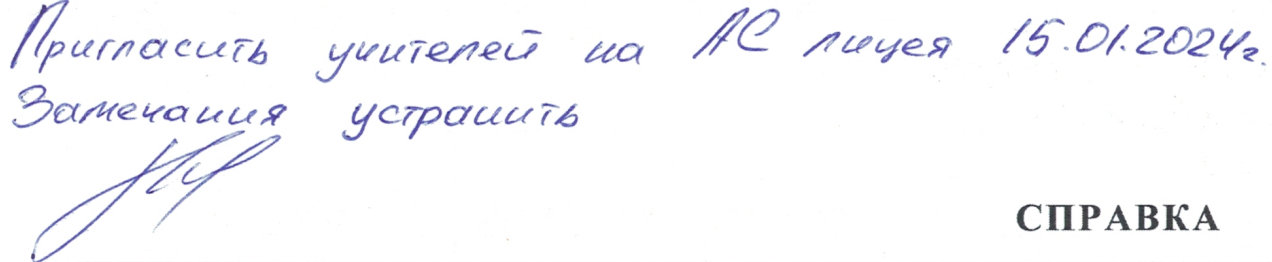 Пригласить учителей на АС лицея 15.01.2024г.
Замечания устранить
СПРАВКА